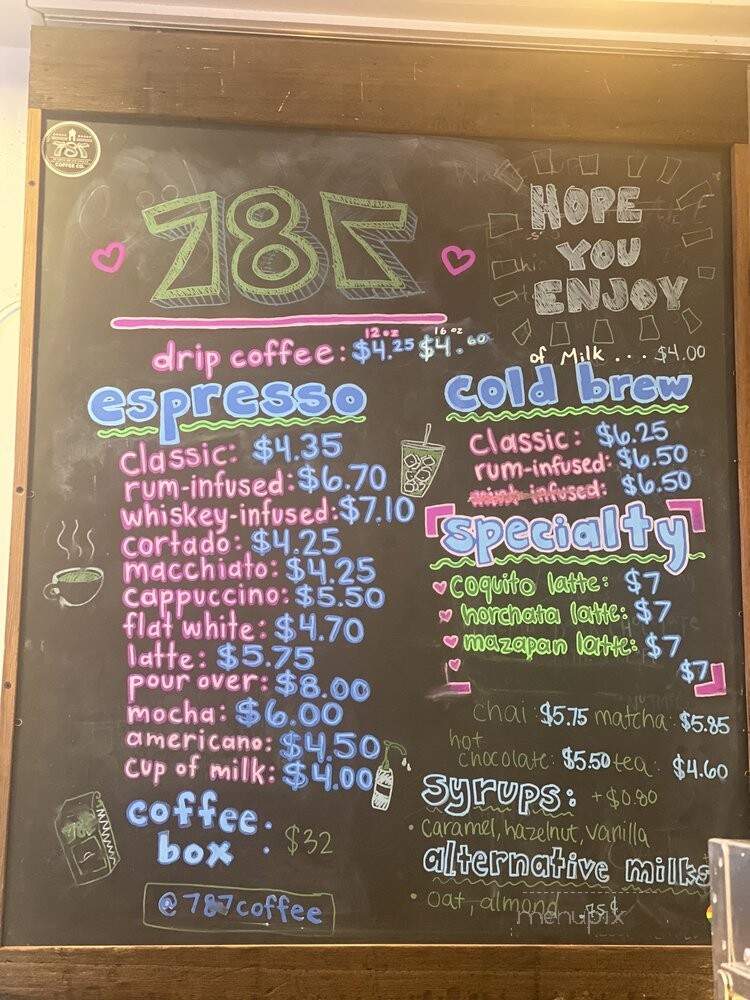 787
COFFEE CO.
787
HOPE
YOU
ENJOY
12 oz 16 oz
drip coffee: $4.25 $4.60
of Milk... $4.00
espresso
classic: $4.35
rum-infused: $6.70
whiskey-infused: $7.10
cortado: $4.25
macchiato: $4.25
cappuccino: $5.50
flat white: $4.70
latte: $5.75
pour over: $8.00
mocha: $6.00
americano: $4.50
cup of milk: $4.00
coffee
box : $32
@787coffee
cold brew
classic: $6.25
rum-infused: $6.50
infused: $6.50
specialty
coquito latte: $7
horchata latte: $7
mazapan latte: $7
$7
chai: $5.75 matcha: $5.85
hot
chocolate: $5.50 tea: $4.60
syrups: +$0.80
• caramel, hazelnut, vanilla
alternative milks
• oat, almond .75¢
menupix